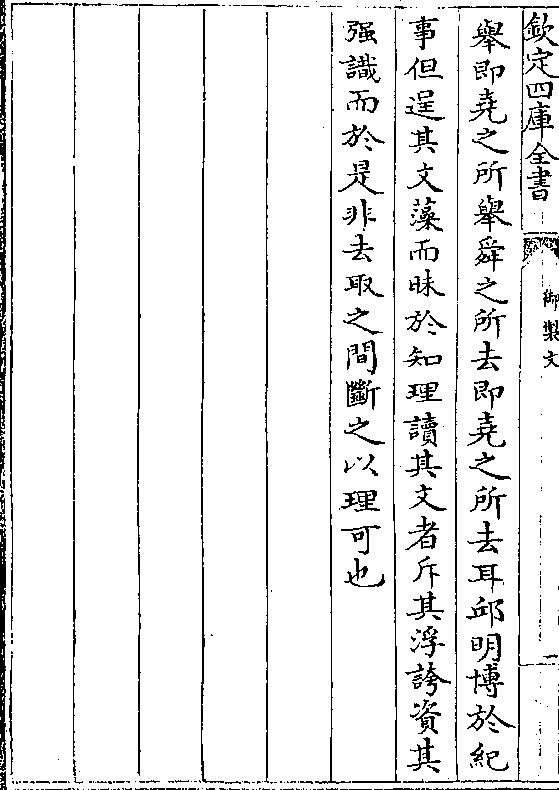 欽定四庫全書
御製文
一
舉即堯之所舉舜之所去即堯之所去耳邱明博於紀
事但逞其文藻而昧於知理讀其文者斥其浮誇資其
强識而於是非去取之間斷之以理可也